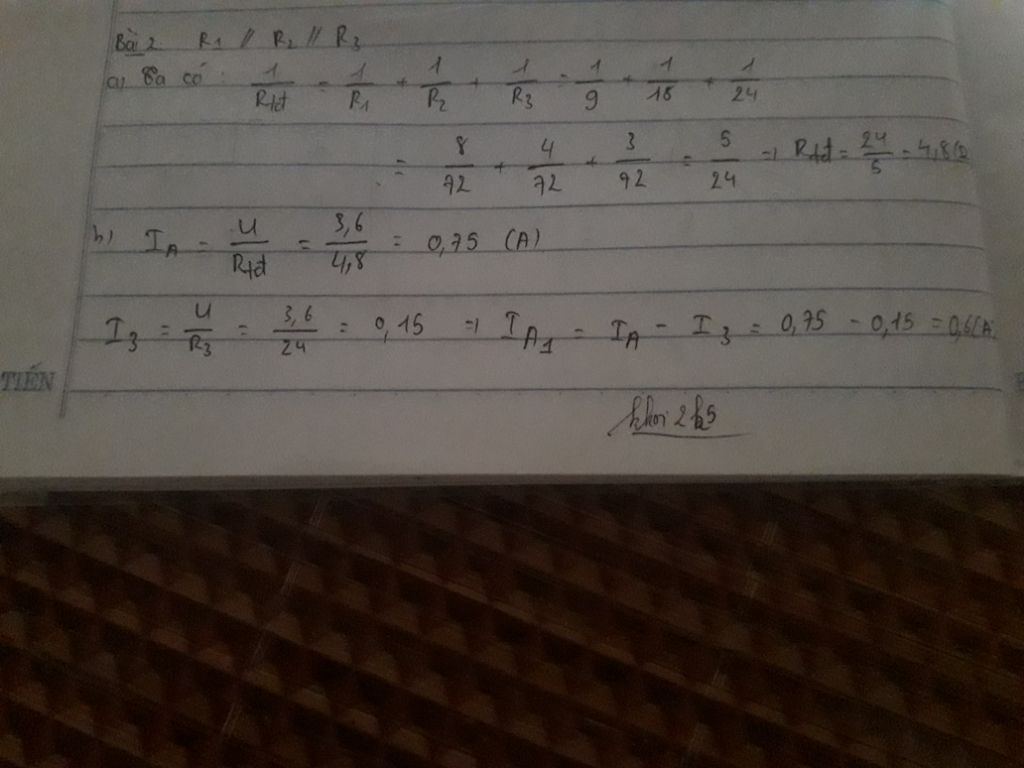 Bài 2 R1 // R2 // R3
a) Ta có: 1/Rtđ = 1/R1 + 1/R2 + 1/R3 = 1/9 + 1/18 + 1/24
= 8/72 + 4/72 + 3/72 = 5/24 => Rtđ = 24/5 = 4,8 (Ω
b) IA = U/Rtđ = 3,6/4,8 = 0,75 (A)
I3 = U/R3 = 3,6/24 = 0,15 => IA1 = IA - I3 = 0,75 - 0,15 = 0,6 (A
TIẾN
khoi 2k5